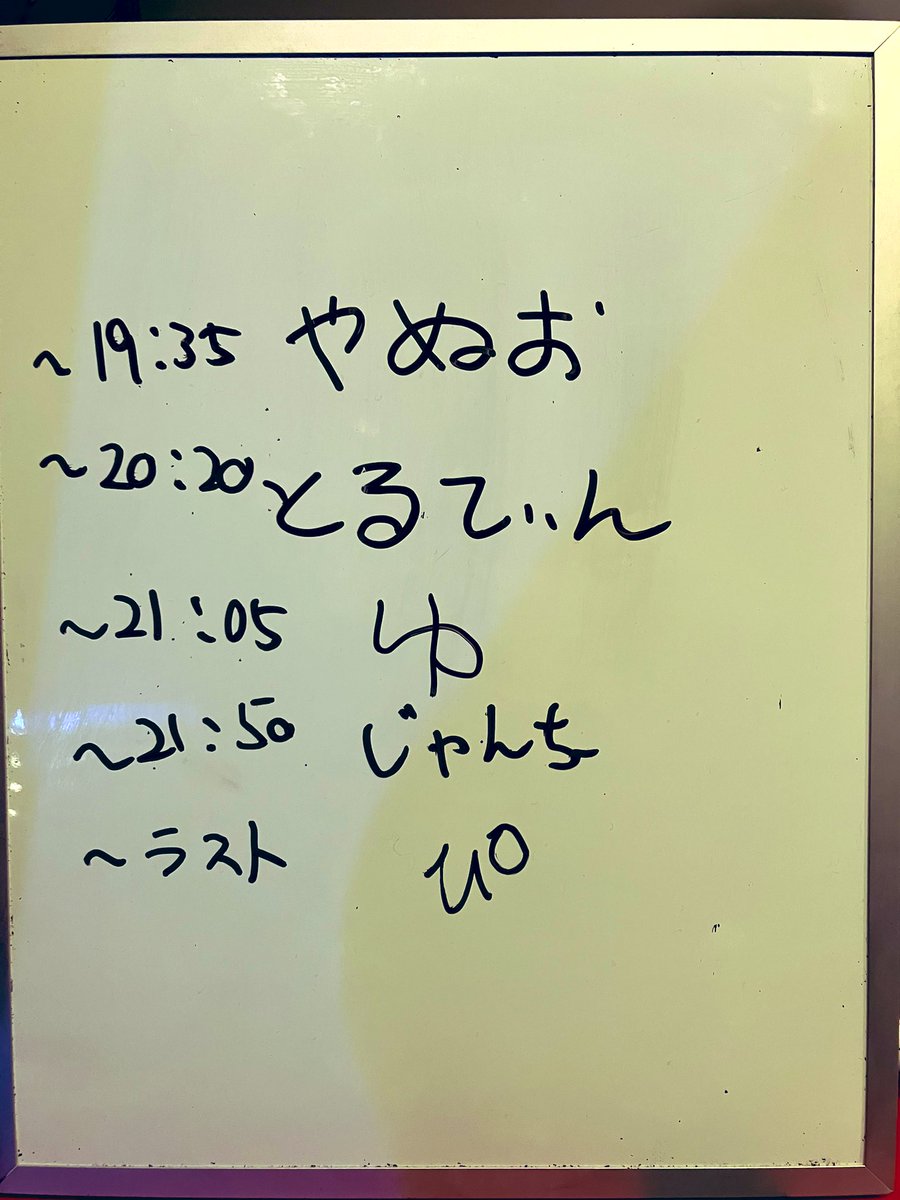 ~19:35 やぬお
~20:20 とるてぃん
~21:05 ゆ
~21:50 じゃんち
~ラスト ぴ